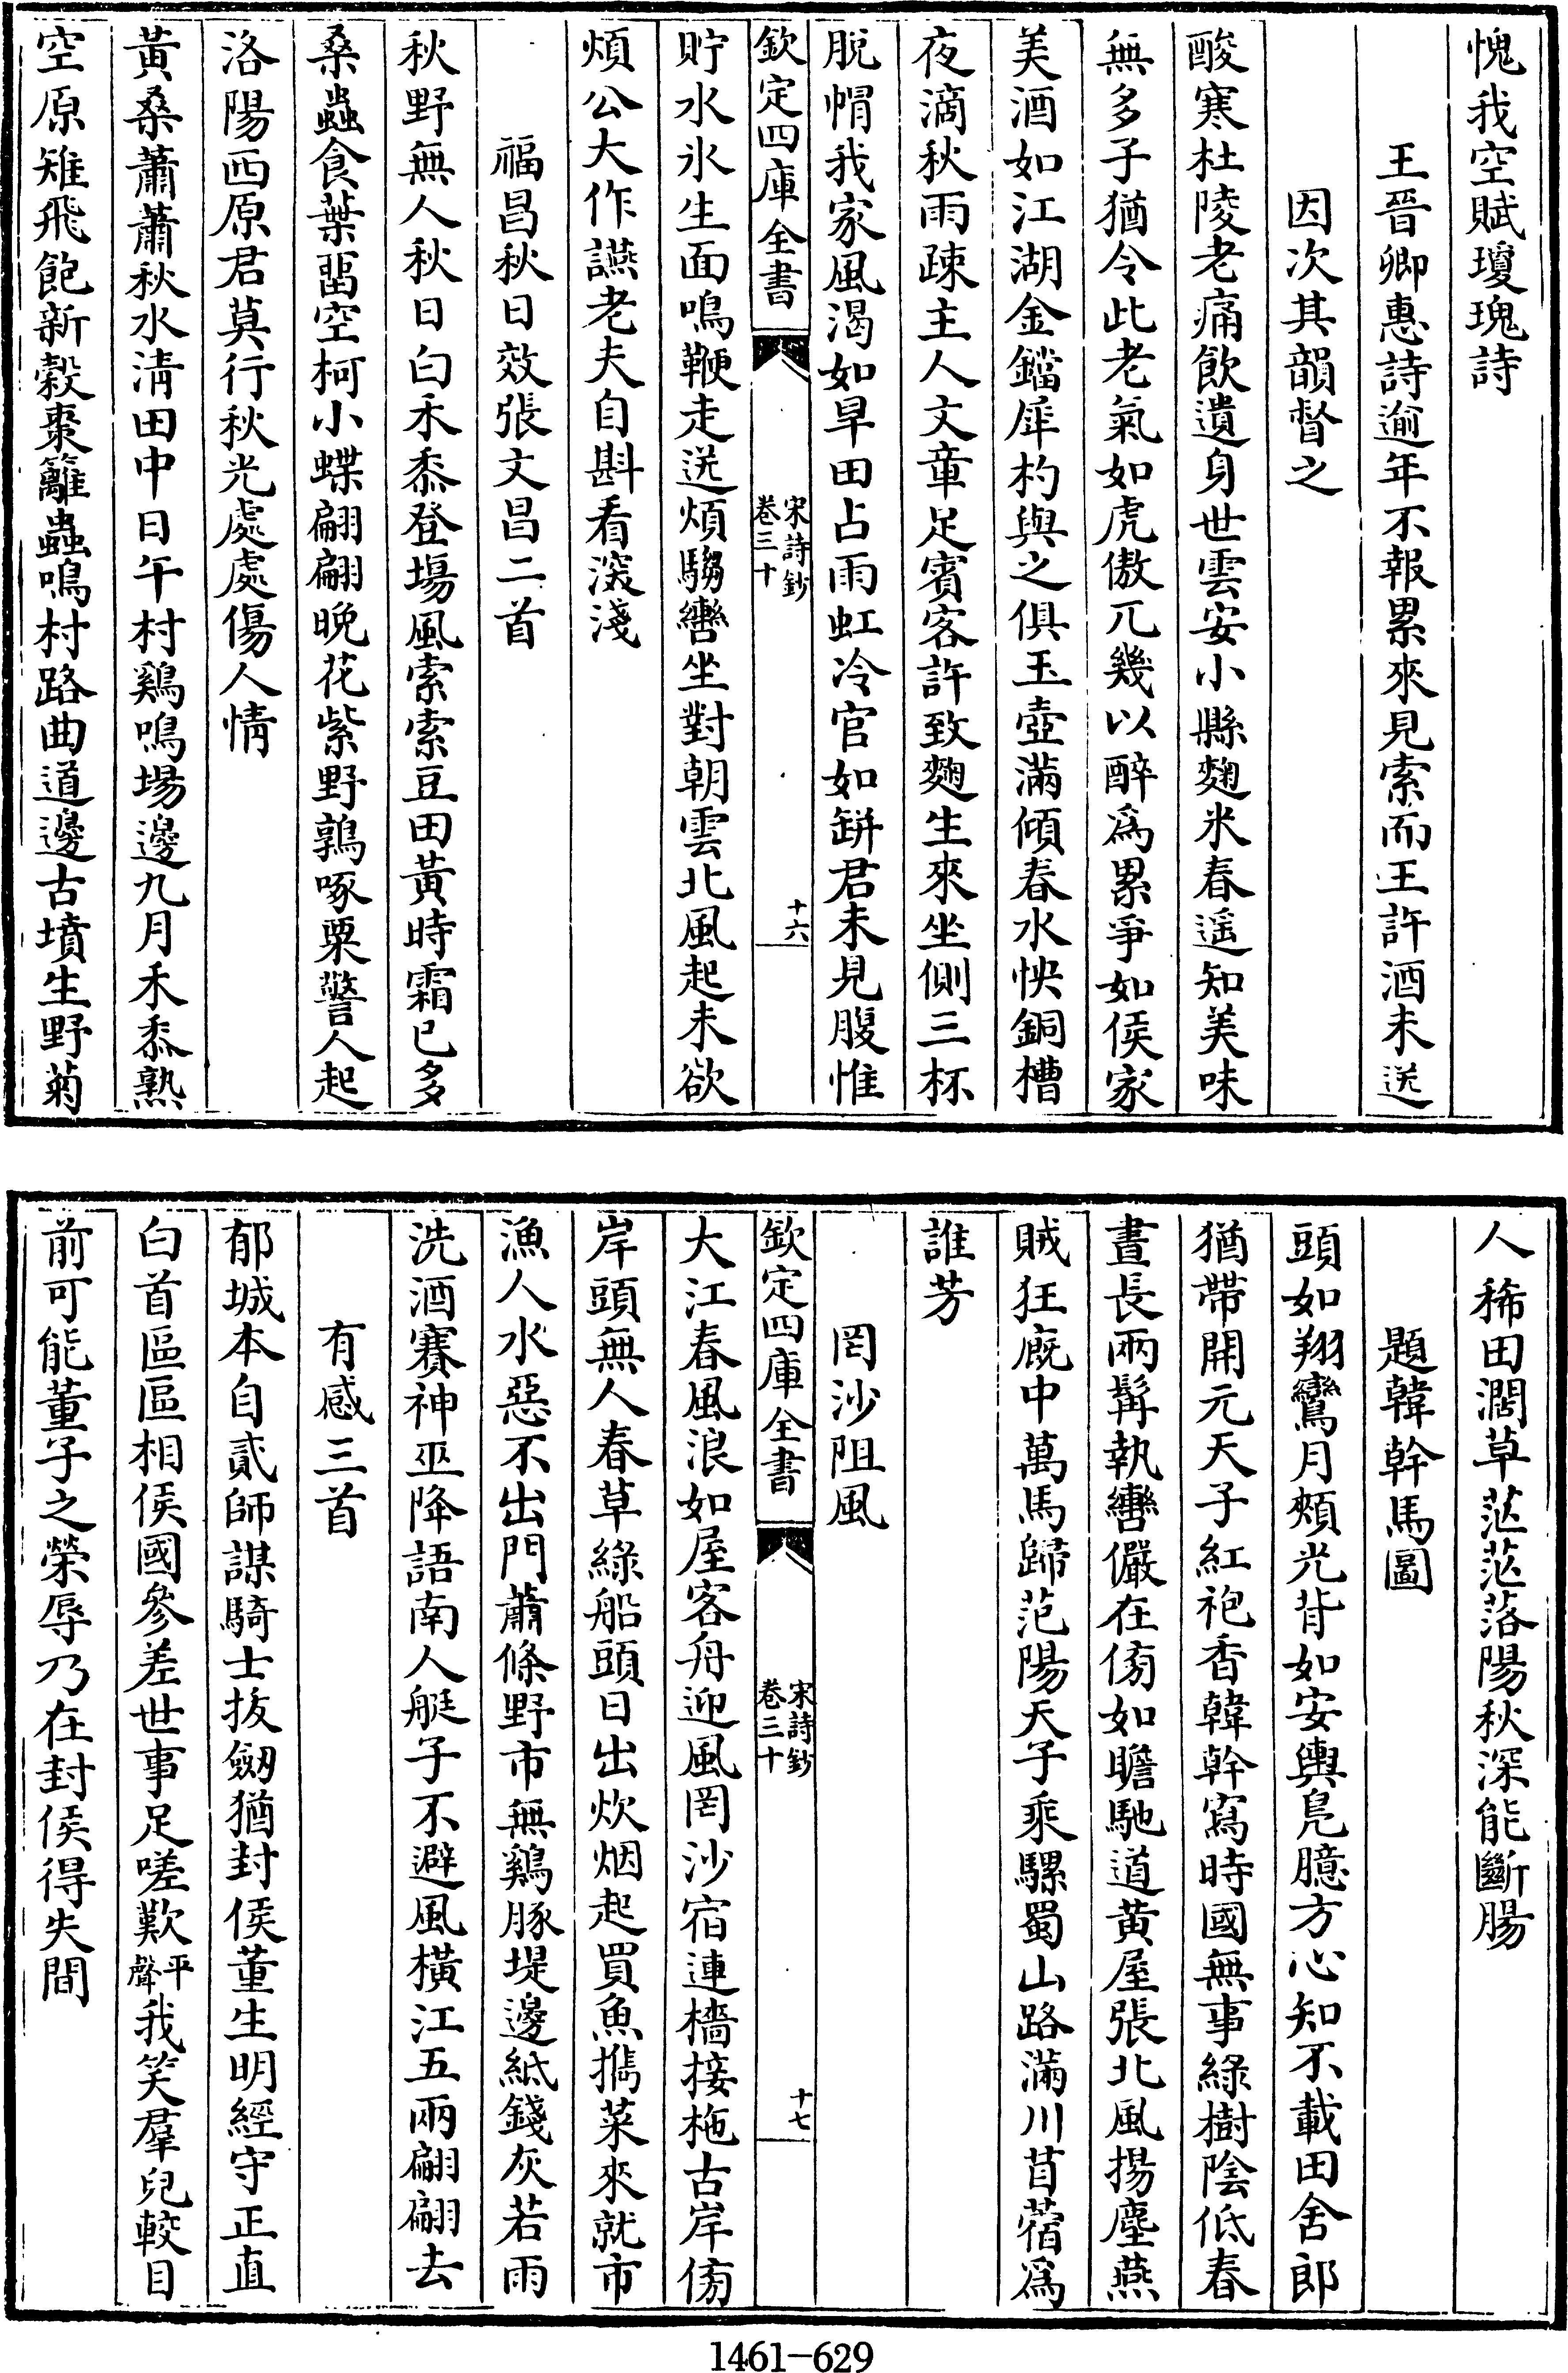 愧我空賦瓊瑰詩
王晉卿惠詩逾年不報累來見索而王許酒未送
因次其韻督之
酸寒杜陵老痛飲遺身世雲安小縣麴米春遥知美味
無多子猶令此老氣如虎傲兀幾以醉爲累爭如侯家
美酒如江湖金鐺犀杓與之俱玉壺滿傾春水怏銅槽
夜滴秋雨疎主人文章足賓客許致麴生來坐側三杯
脱帽我家風渴如旱田占雨虹冷官如缾君未見腹惟
欽定四庫全書
宋詩鈔
卷三十
十六
貯水氷生面鳴鞭走送煩騶轡坐對朝雲北風起未欲
煩公大作讌老夫自斟看深淺
福昌秋日效張文昌二首
秋野無人秋日白禾黍登場風索索豆田黃時霜已多
桑蟲食葉留空柯小蝶翩翩晚花紫野鶉啄粟驚人起
洛陽西原君莫行秋光處處傷人情
黃桑蕭蕭秋水清田中日午村鷄鳴場邊九月禾黍熟
空原雉飛飽新穀棗籬蟲鳴村路曲道邊古墳生野菊
人稀田濶草茫茫落陽秋深能斷腸
題韓幹馬圖
頭如翔鸞月頰光背如安輿鳧臆方心知不載田舍郎
猶帶開元天子紅袍香韓幹寫時國無事綠樹陰低春
晝長兩髯執轡儼在傍如瞻馳道黃屋張北風揚塵燕
賊狂廐中萬馬歸范陽天子乘騾蜀山路滿川苜蓿爲
誰芳
罔沙阻風
欽定四庫全書
宋詩鈔
卷三十
十七
大江春風浪如屋客舟迎風罔沙宿連檣接柂古岸傍
岸頭無人春草綠船頭日出炊烟起買魚擕菜來就市
漁人水惡不出門蕭條野市無鷄豚堤邊紙錢灰若雨
洗酒賽神巫降語南人艇子不避風橫江五兩翩翩去
有感三首
郁城本自貳師謀騎士拔劒猶封侯董生明經守正直
白首區區相侯國參差世事足嗟歎平聲我笑羣兒較目
前可能董子之榮辱乃在封侯得失間
1461-629